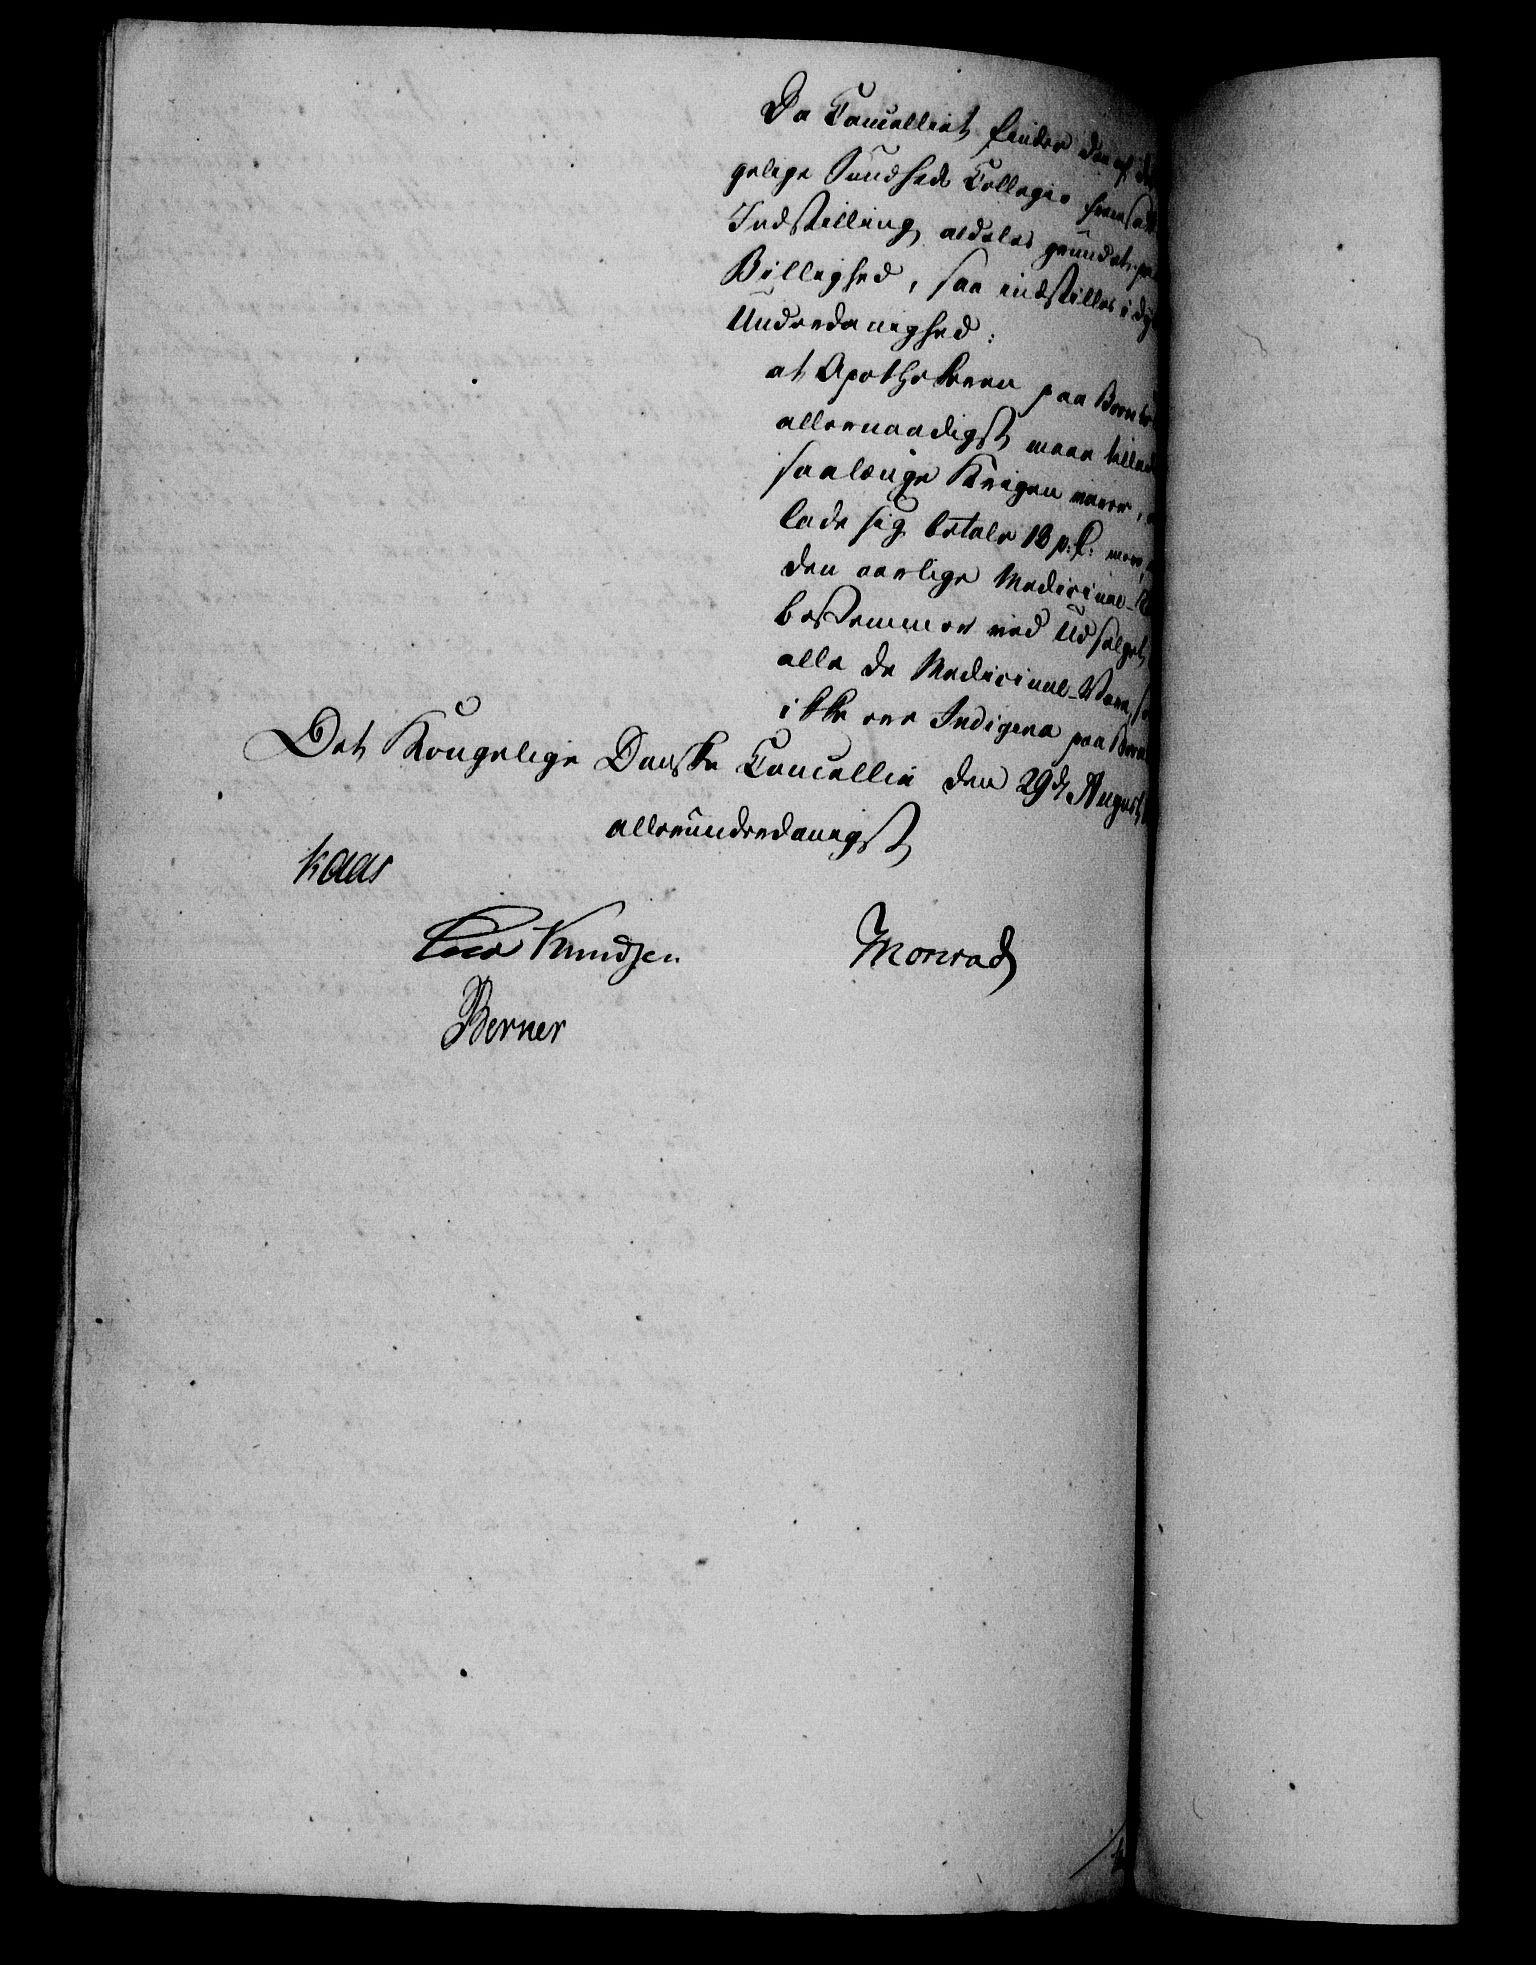 Da Cancelliet finder den af det
gelige Sundheds Collegio fremsatte
Indstilling aldeles grundet paa
Billighed, saa indstilles i dyb
Underdanighed:
at Apothekeren paa Born
allernaadigst maae tillad
saalænge Krigen varer,
lade sig betale 12 p. C. mere
den aarlige Medicinal-
bestemmer ved Udsalget
alle de Medicinal-Vare, so
ikke ere Indigena paa Born
Det Kongelige Danske Cancellie den 29de August
allerunderdanigst
Kaas
Knudsen Monrad
Berner